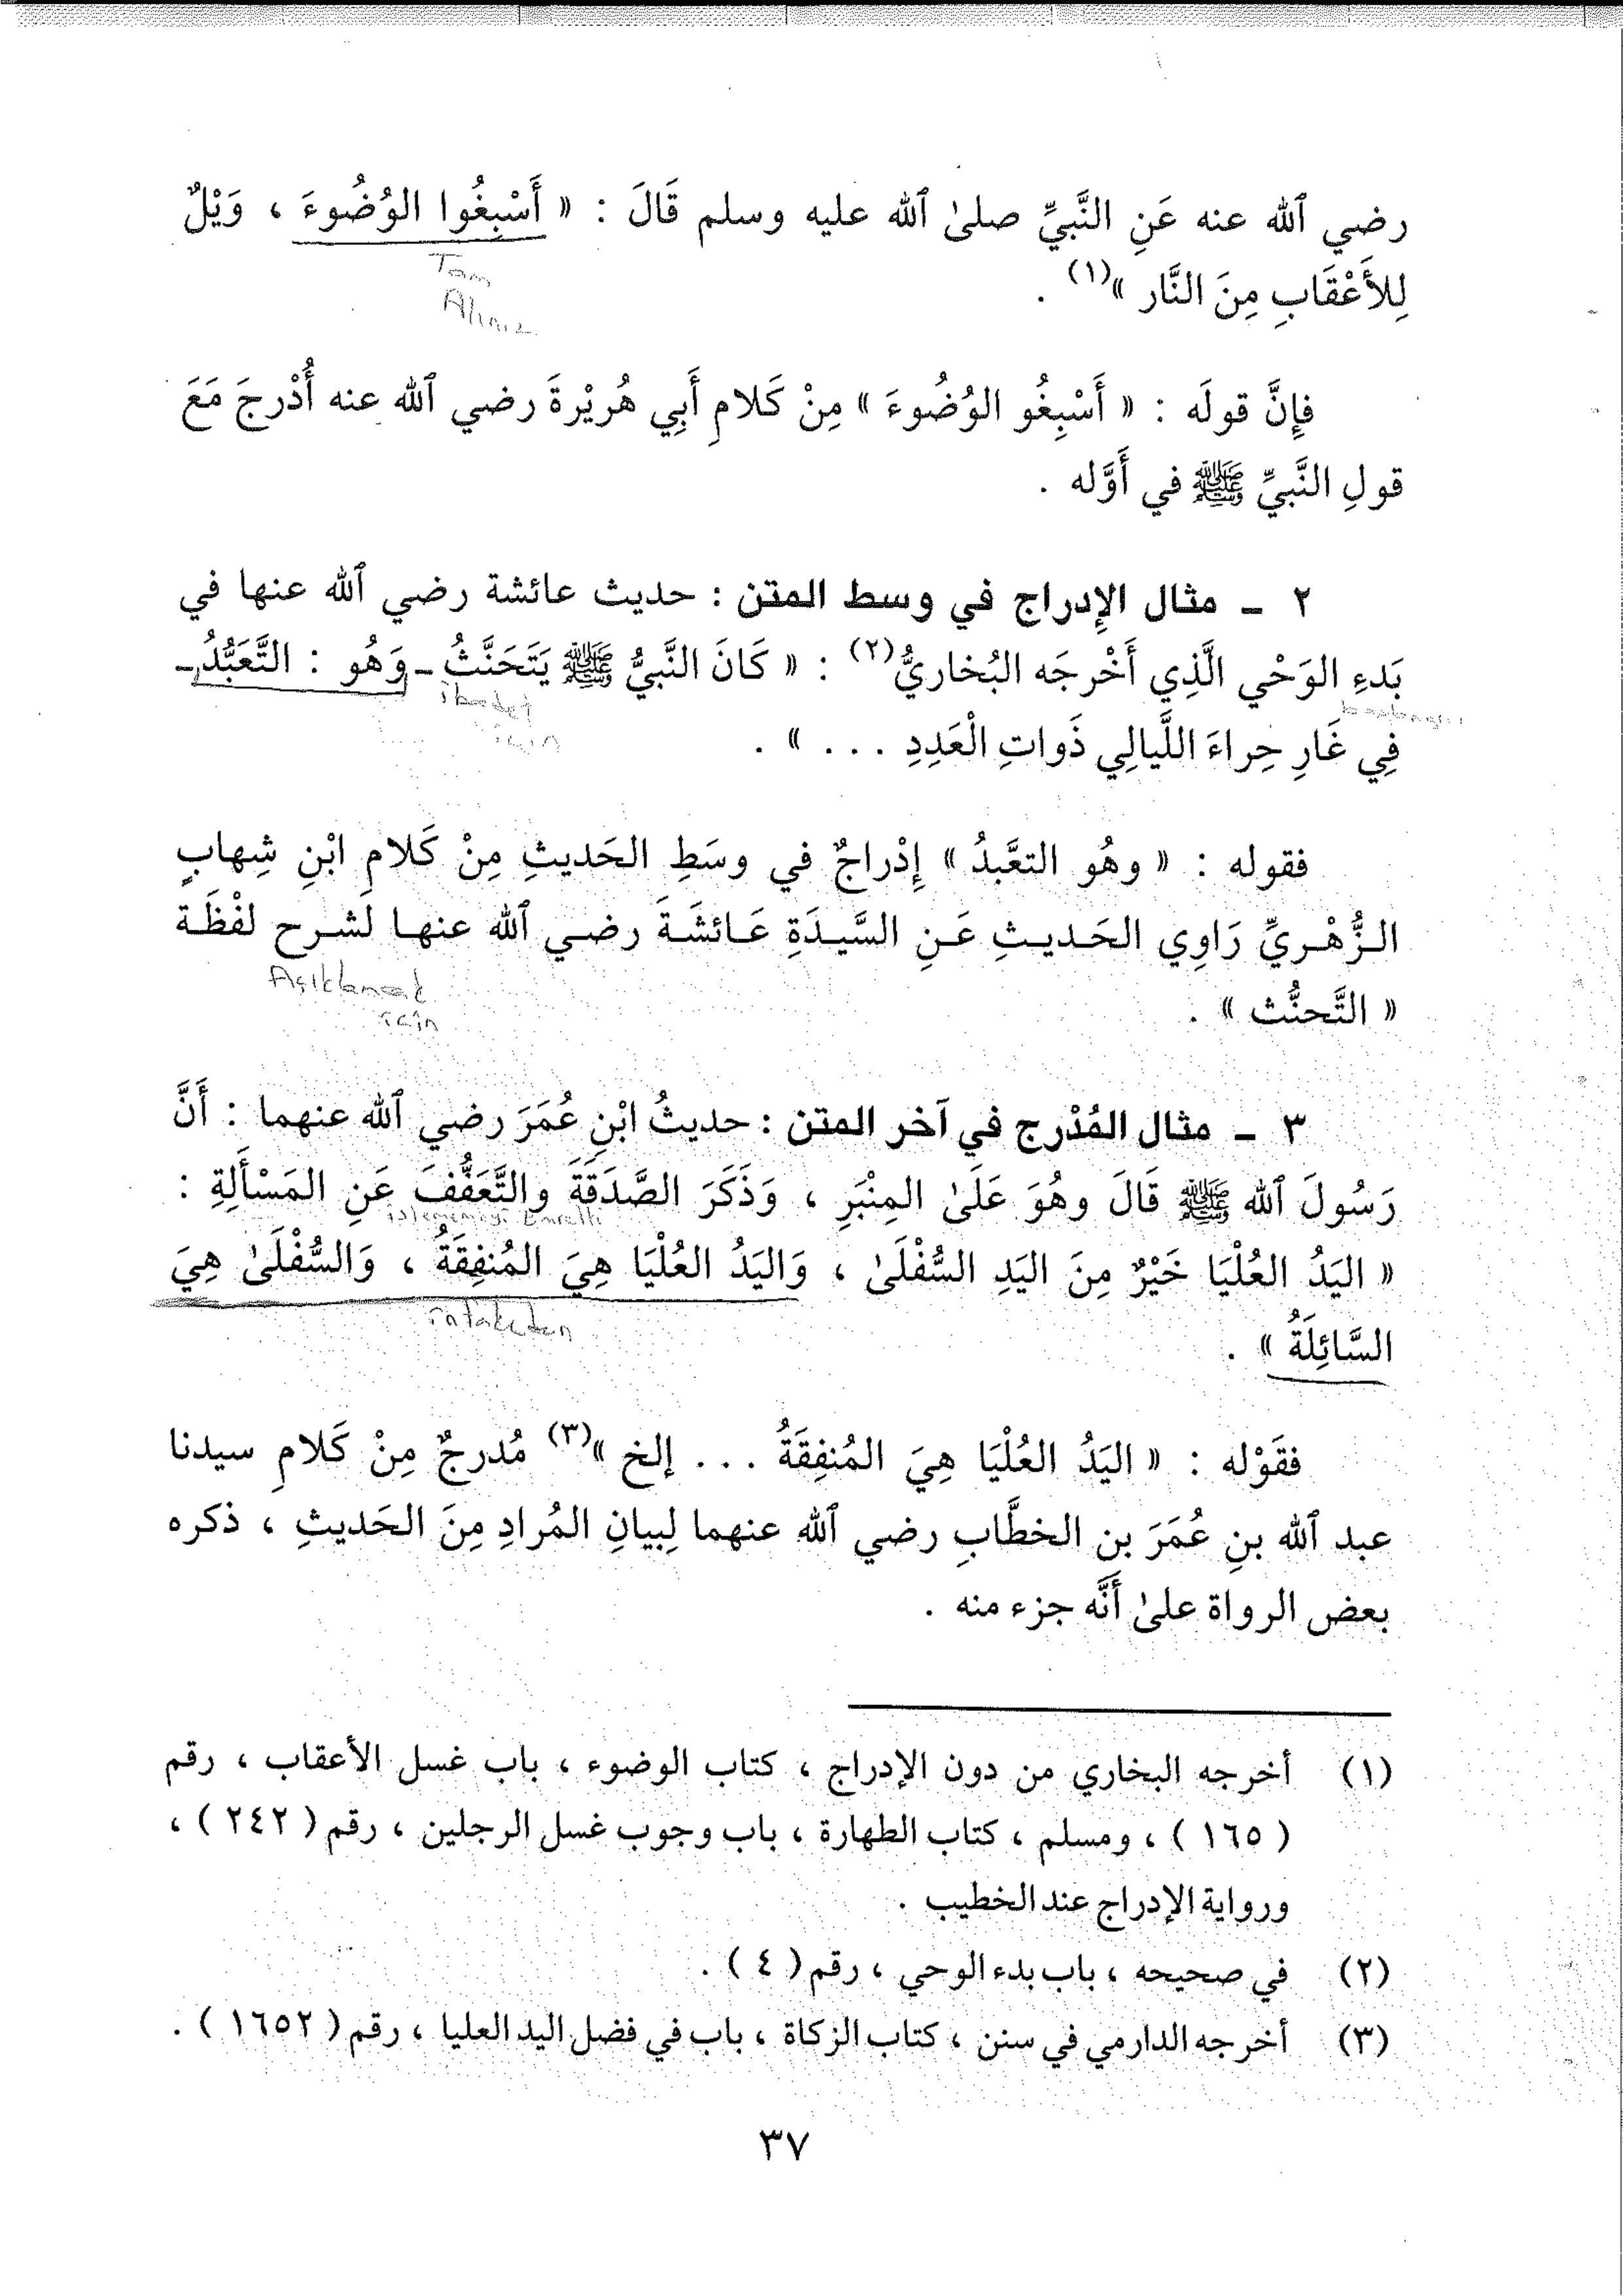 رضي ٱلله عنه عَنِ النَّبيِّ صلىٰ ٱلله عليه وسلم قَالَ : « أَسْبِغُوا الوُضُوءَ ، وَيْلٌ
Tam
Alınız
لِلأَعْقَابِ مِنَ النَّار »(١) .
فإِنَّ قولَه : « أَسْبِغُو الوُضُوءَ » مِنْ كَلامِ أَبِي هُريْرةَ رضي ٱلله عنه أُدْرجَ مَعَ
قولِ النَّبيِّ ﷺ في أَوَّله .
٢ ـ مثال الإِدراج في وسط المتن : حديث عائشة رضي ٱلله عنها في
بَدءِ الوَحْي الَّذِي أَخْرجَه البُخاريُّ(٢) : « كَانَ النَّبيُّ ﷺ يَتَحَنَّثُ ـ وَهُو : التَّعَبُّدُ ـ
فِي غَارِ حِراءَ اللَّيالِي ذَواتِ الْعَدِدِ . . . » .
فقوله : « وهُو التعَّبدُ » إِدْراجٌ في وسَطِ الحَديثِ مِنْ كَلامِ ابْنِ شِهابٍ
الـزُّهْـريِّ رَاوِي الحَـديـثِ عَـنِ السَّيـدَةِ عَـائشَـةَ رضـي ٱلله عنهـا لَشـرح لفْظَـة
Açıklamak
için
« التَّحنُّث » .
٣ ـ مثال المُدْرج في آخر المتن : حديثُ ابْنِ عُمَرَ رضي ٱلله عنهما : أَنَّ
رَسُولَ ٱلله ﷺ قَالَ وهُوَ عَلَىٰ المِنْبَرِ ، وَذَكَرَ الصَّدَقَةَ والتَّعَفُّفَ عَنِ المَسْأَلِةِ :
« اليَدُ العُلْيَا خَيْرٌ مِنَ اليَدِ السُّفْلَىٰ ، وَاليَدُ العُلْيَا هِيَ المُنفِقَةُ ، وَالسُّفْلَىٰ هِيَ
السَّائِلَةُ » .
فقَوْله : « اليَدُ العُلْيَا هِيَ المُنفِقَةُ . . . إلخ »(٣) مُدرجٌ مِنْ كَلامِ سيدنا
عبد ٱلله بنِ عُمَرَ بن الخطَّابِ رضي ٱلله عنهما لِبيانِ المُرادِ مِنَ الحَديثِ ، ذكره
بعض الرواة علىٰ أَنَّه جزء منه .
(١) أخرجه البخاري من دون الإدراج ، كتاب الوضوء ، باب غسل الأعقاب ، رقم
( ١٦٥ ) ، ومسلم ، كتاب الطهارة ، باب وجوب غسل الرجلين ، رقم ( ٢٤٢ ) ،
ورواية الإدراج عند الخطيب .
(٢) في صحيحه ، باب بدء الوحي ، رقم ( ٤ ) .
(٣) أخرجه الدارمي في سنن ، كتاب الزكاة ، باب في فضل اليد العليا ، رقم ( ١٦٥٢ ) .
٣٧